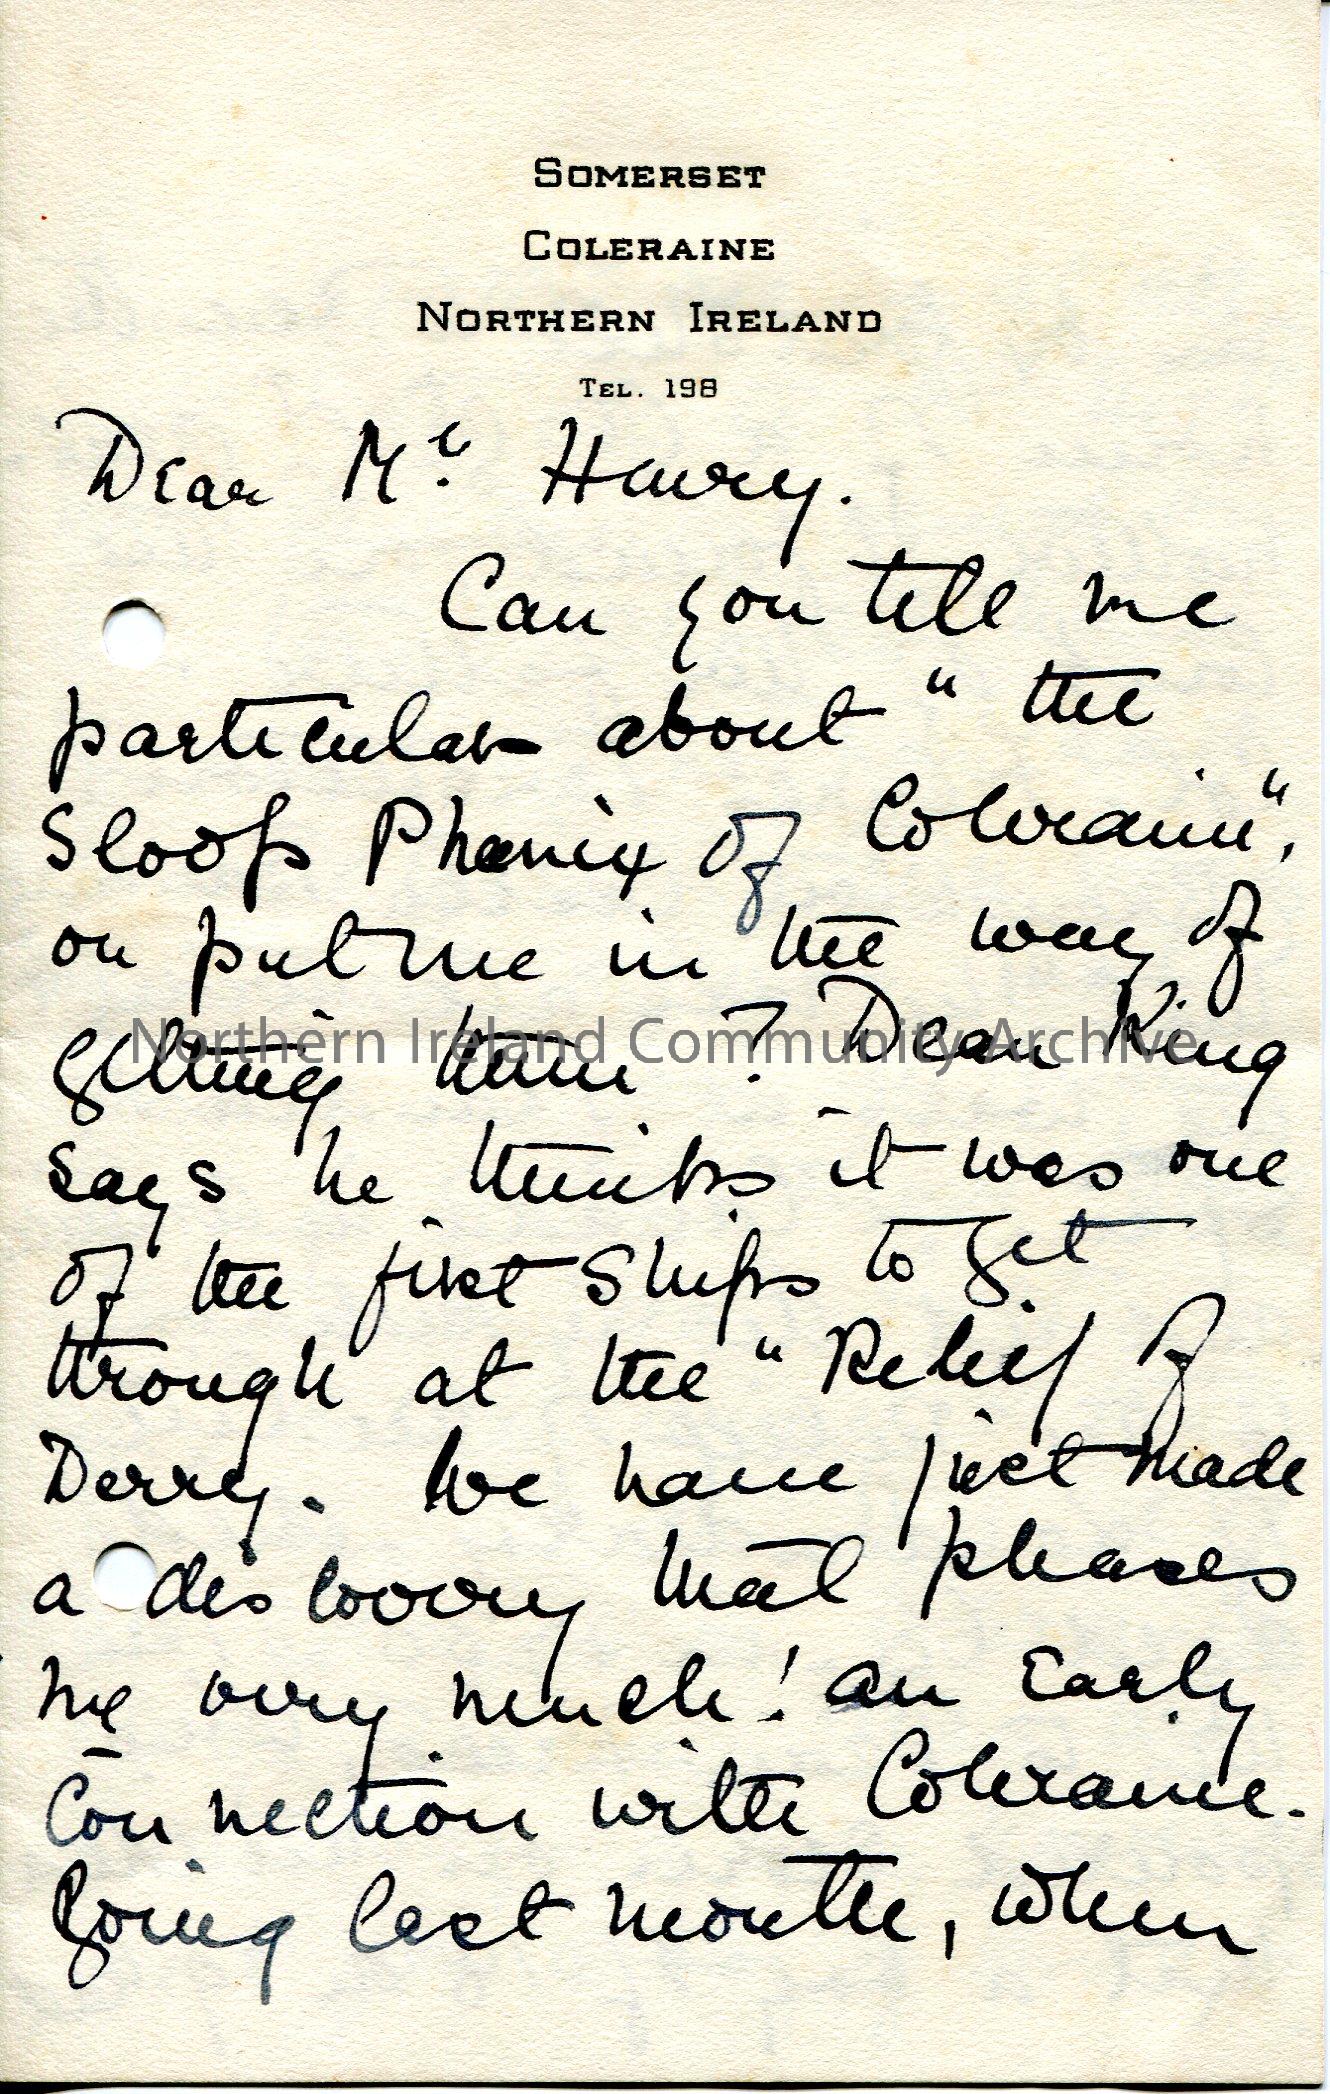 SOMERSET
COLERAINE
NORTHERN IRELAND
TEL. 198
Dear Mr. Henry.
Can you tell me
particulars about "the
Sloop Phœnix of Coleraine",
or put me in the way of
getting them? Dean King
says he thinks it was one
of the first ships to get
through at the "Relief of
Derry. We have just made
a discovery that pleases
me very much! an Early
Connection with Coleraine.
Going last month, when
Northern Ireland Community Archive